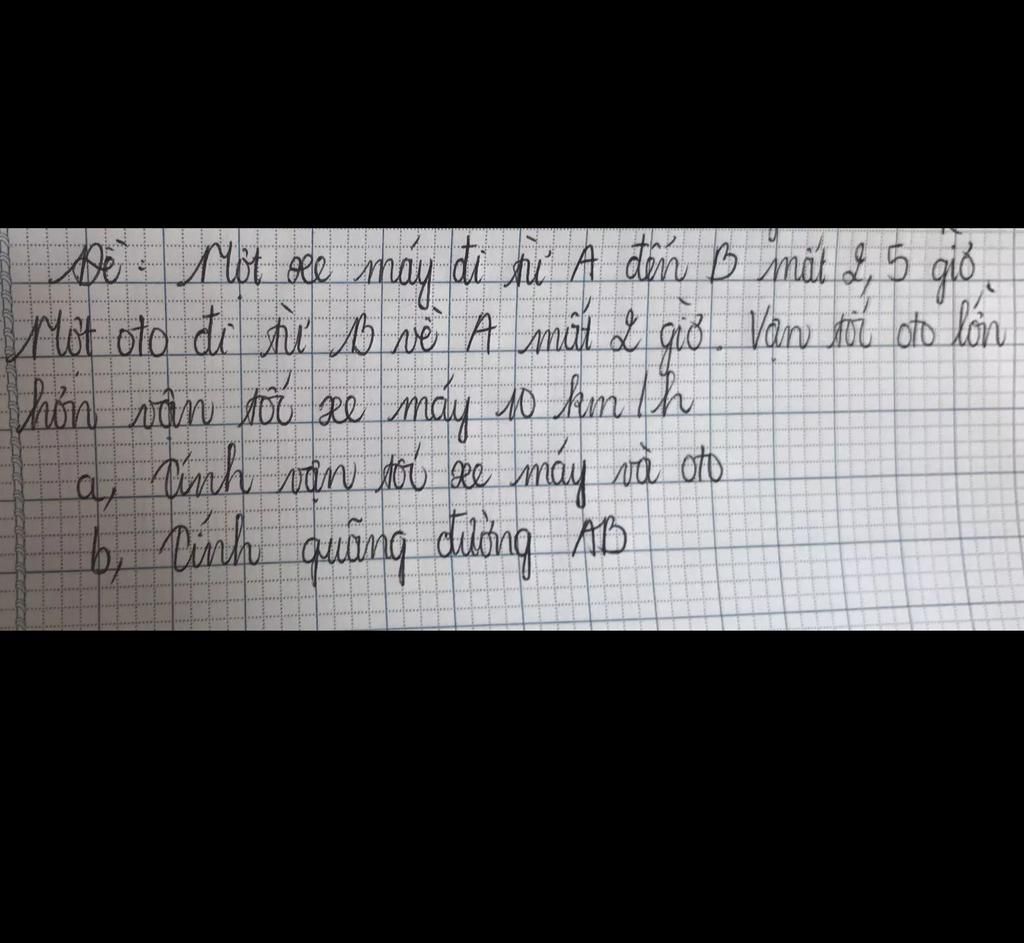 Đề: Một xe máy đi từ A đến B mất 2,5 giờ.
Một oto đi từ B về A mất 2 giờ. Vận tốc oto lớn
hơn vận tốc xe máy 10 km/h
a, Tính vận tốc xe máy và oto
b, Tính quãng đường AB